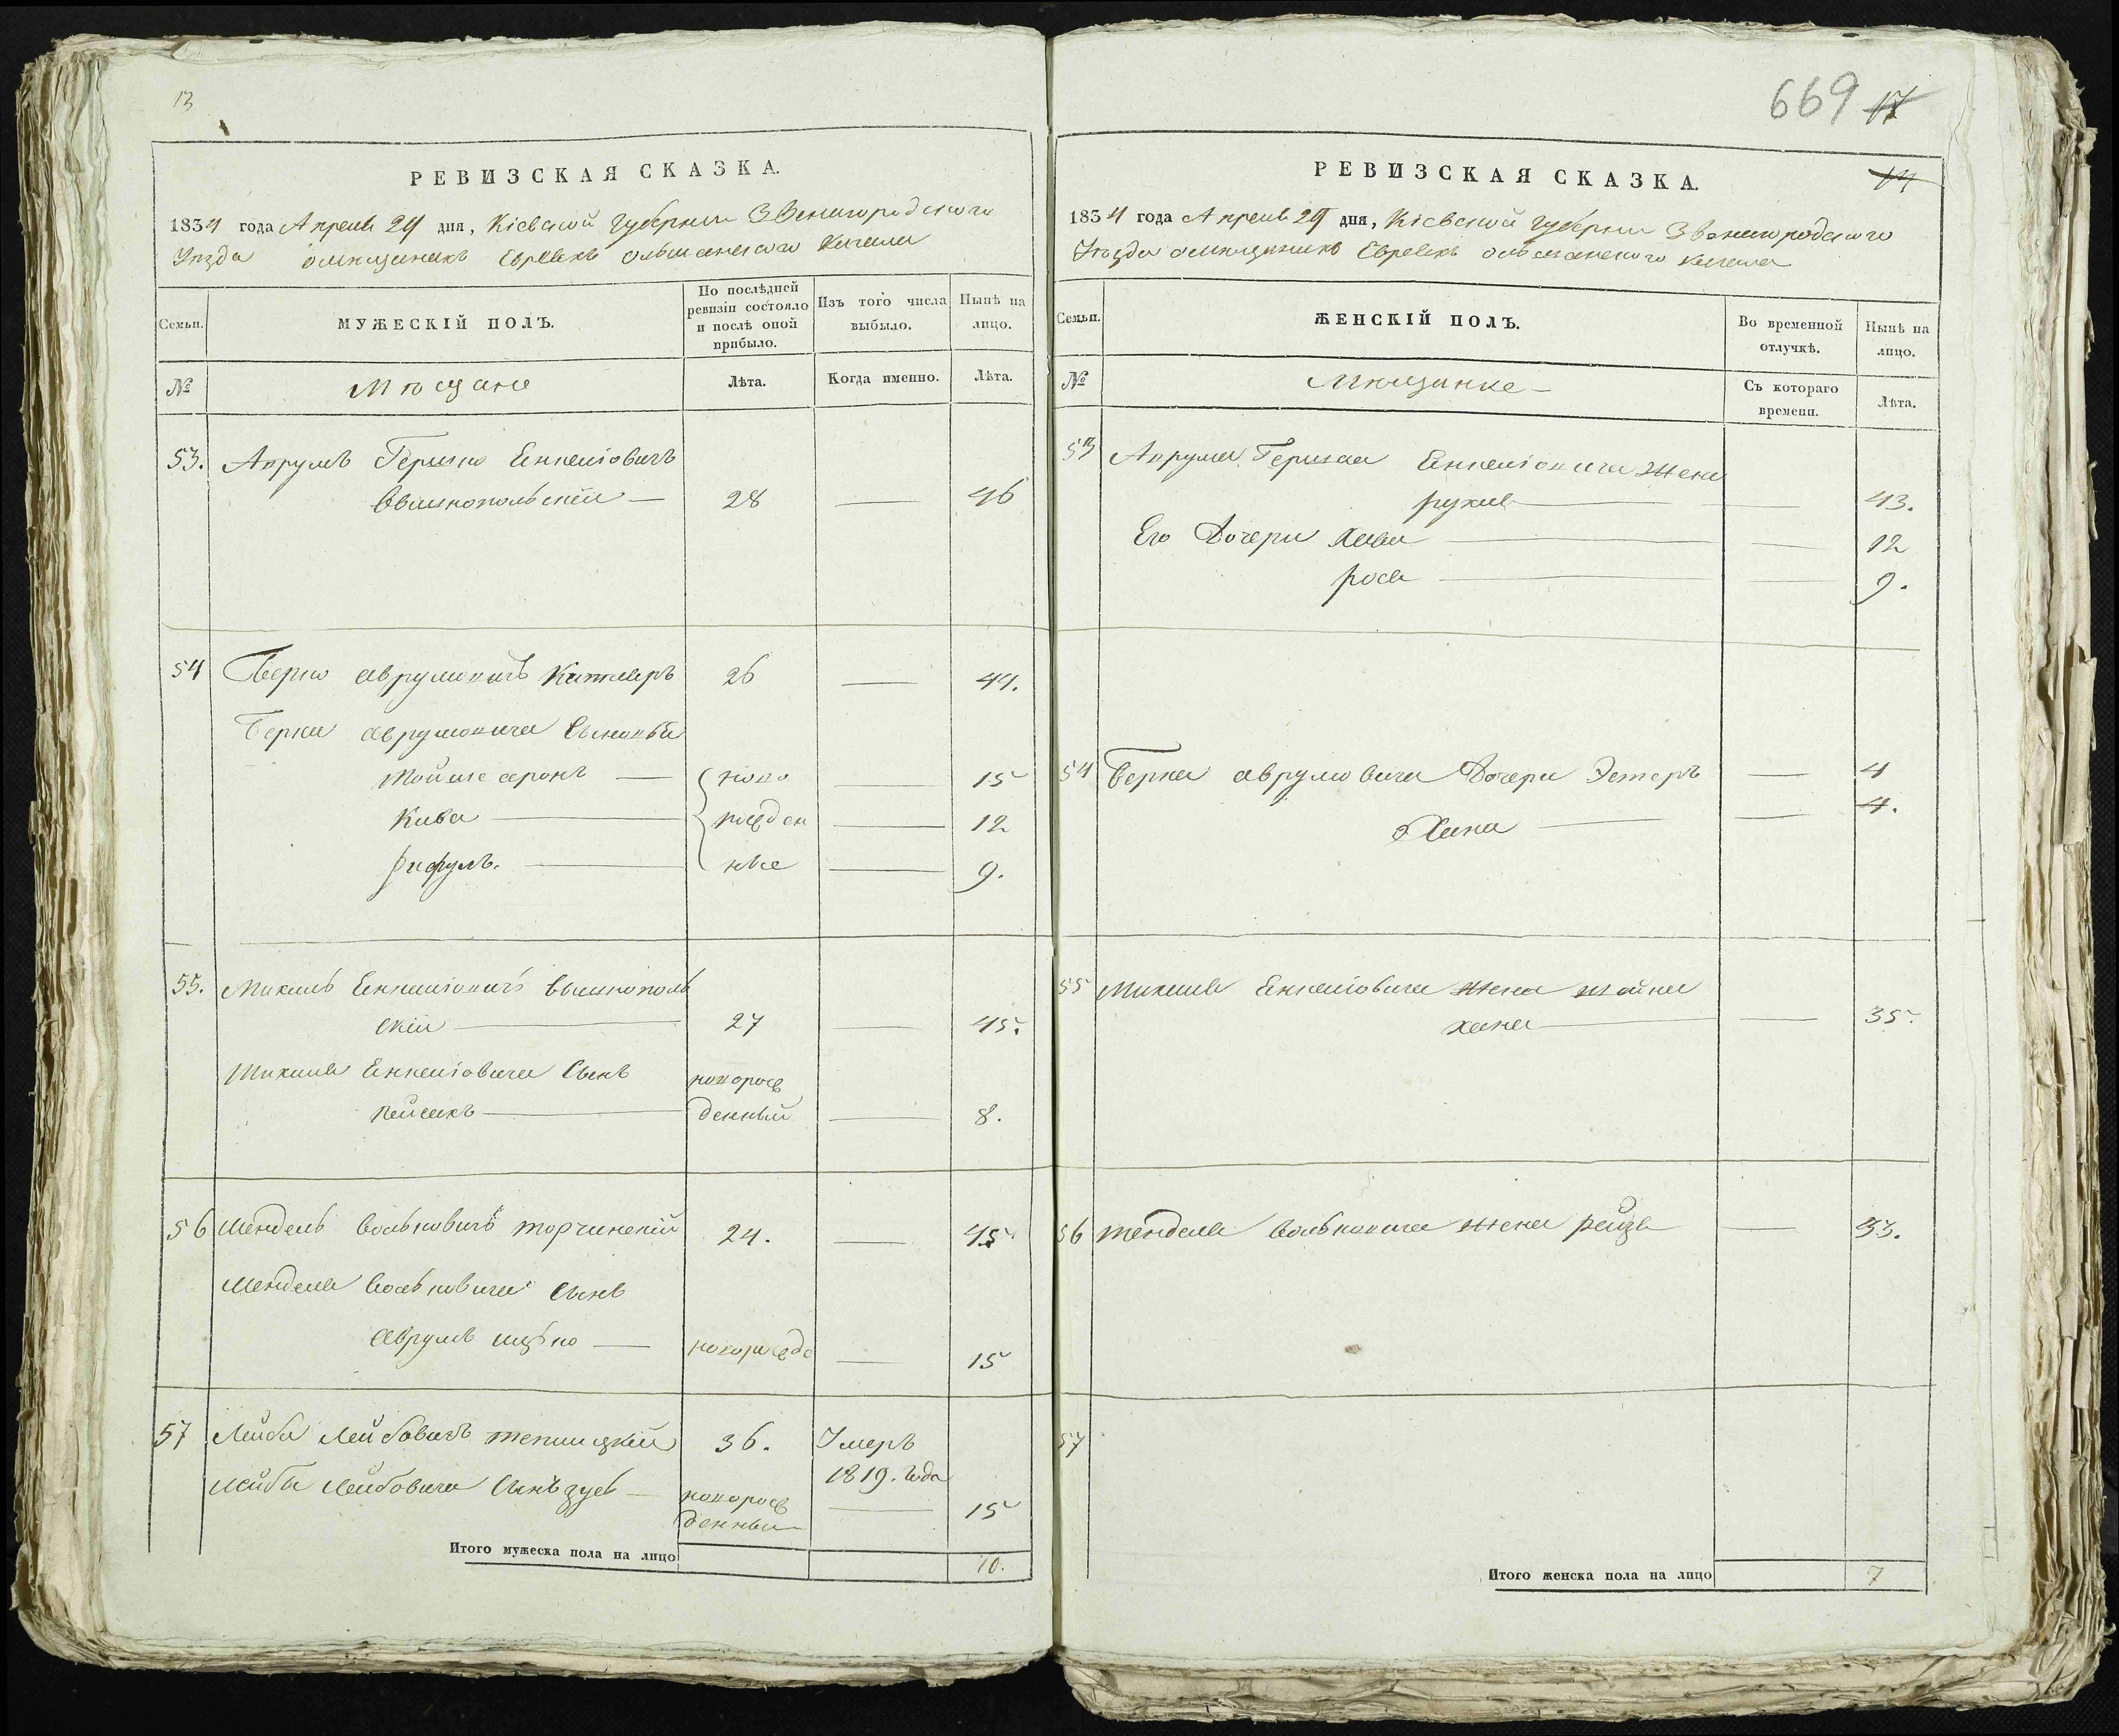 13
РЕВИЗСКАЯ СКАЗКА.
1834 года Апреля 29 дня, Кіевской Губерніи Звенигородского
Уезда о мещанахъ Евреехъ Ольшанского Кагала
Семьи. МУЖЕСКІЙ ПОЛЪ. По послѣдней ревизіи состояло и послѣ оной прибыло. Изъ того числа выбыло. Нынѣ на лицо.
№ Мещане Лѣта. Когда именно. Лѣта.
53. Аврумъ Гершко Енкеліовичъ
Вышнопольскій — 28 — 46
54 Берко Аврумовичъ 26 — 44.
Берка Аврумовича Сыновья
Мойше аронъ — ново — 15
Кива — рожден — 12
ные — 9.
55. Михель Енкеліовичъ Вышнополь
скій — 27 — 45.
Михеля Енкеліовича Сынъ новорож
Пейсахъ — денный — 8.
56 Мендель Волковичъ Торчинскій 24. — 45
Менделя Волковича Сынъ
Аврумъ Ицко — новорожде — 15
57 Лейба Лейбовичъ 36. Умеръ
1819. Года
Лейбы Лейбовича Сынъ Зусь — новорож
денный — 15
Итого мужеска пола на лицо 10.
669 17
14
РЕВИЗСКАЯ СКАЗКА.
1834 года Апреля 29 дня, Кіевской Губерніи Звенигородского
Уезда о мещанахъ Евреехъ Ольшанского Кагала
Семьи. ЖЕНСКІЙ ПОЛЪ. Во временной отлучкѣ. Нынѣ на лицо.
№ Мещанке — Съ котораго времени. Лѣта.
53 Аврума Гершка Енкеліовича Жена
рухля — — 43.
Его Дочери Хава — — 12
рося — — 9.
54 Берка Аврумовича Дочери Эстеръ — 4
Хана — — 4.
55 Михеля Енкеліовича жена шойна
хана — — 35.
56 Менделя Волковича жена рейзя — 33.
57
Итого женска пола на лицо 7